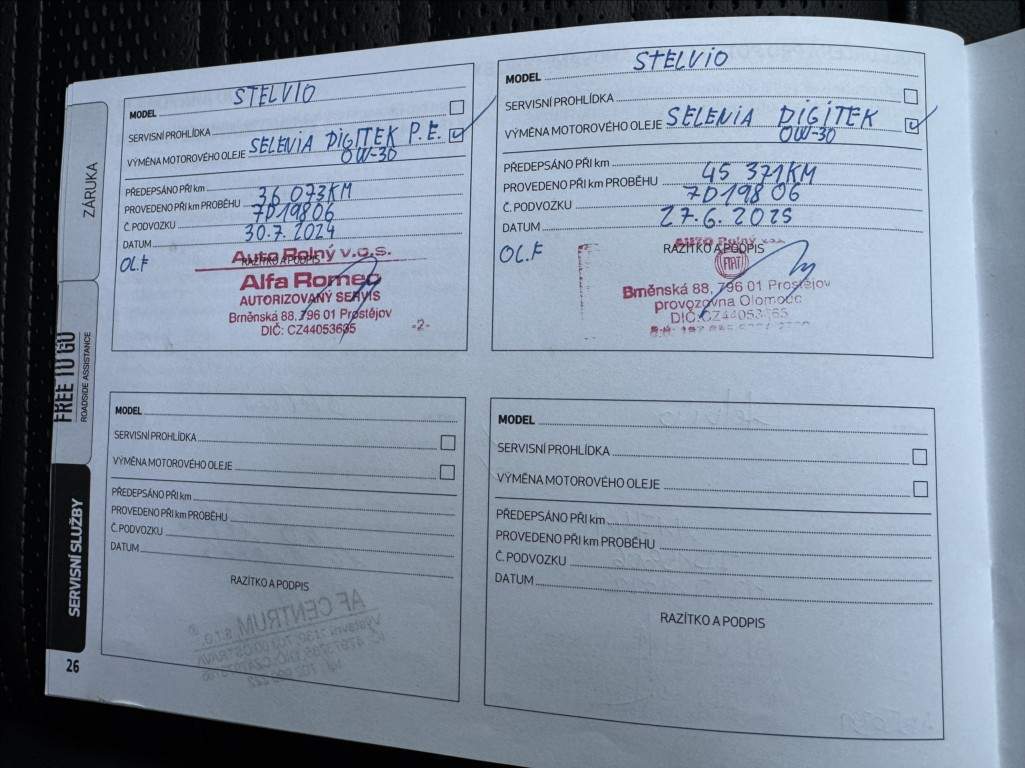 ZÁRUKA
FREE TO GO
ROADSIDE ASSISTANCE
SERVISNÍ SLUŽBY
26
MODEL STELVIO
SERVISNÍ PROHLÍDKA
VÝMĚNA MOTOROVÉHO OLEJE SELENIA DIGITEK P.E.
0W-30
PŘEDEPSÁNO PŘI km
PROVEDENO PŘI km PROBĚHU 36 073KM
Č. PODVOZKU 7D19806
DATUM 30.7.2024
OL.F
RAZÍTKO A PODPIS
Auto Rolný v.o.s.
Alfa Romeo
AUTORIZOVANÝ SERVIS
Brněnská 88, 796 01 Prostějov
DIČ: CZ44053685
-2-
MODEL STELVIO
SERVISNÍ PROHLÍDKA
VÝMĚNA MOTOROVÉHO OLEJE SELENIA DIGITEK
0W-30
PŘEDEPSÁNO PŘI km
PROVEDENO PŘI km PROBĚHU 45 371KM
Č. PODVOZKU 7D19806
DATUM 27.6.2025
OL.F
RAZÍTKO A PODPIS
FIAT
Brněnská 88, 796 01 Prostějov
provozovna Olomouc
MODEL
SERVISNÍ PROHLÍDKA
VÝMĚNA MOTOROVÉHO OLEJE
PŘEDEPSÁNO PŘI km
PROVEDENO PŘI km PROBĚHU
Č. PODVOZKU
DATUM
RAZÍTKO A PODPIS
MODEL
SERVISNÍ PROHLÍDKA
VÝMĚNA MOTOROVÉHO OLEJE
PŘEDEPSÁNO PŘI km
PROVEDENO PŘI km PROBĚHU
Č. PODVOZKU
DATUM
RAZÍTKO A PODPIS